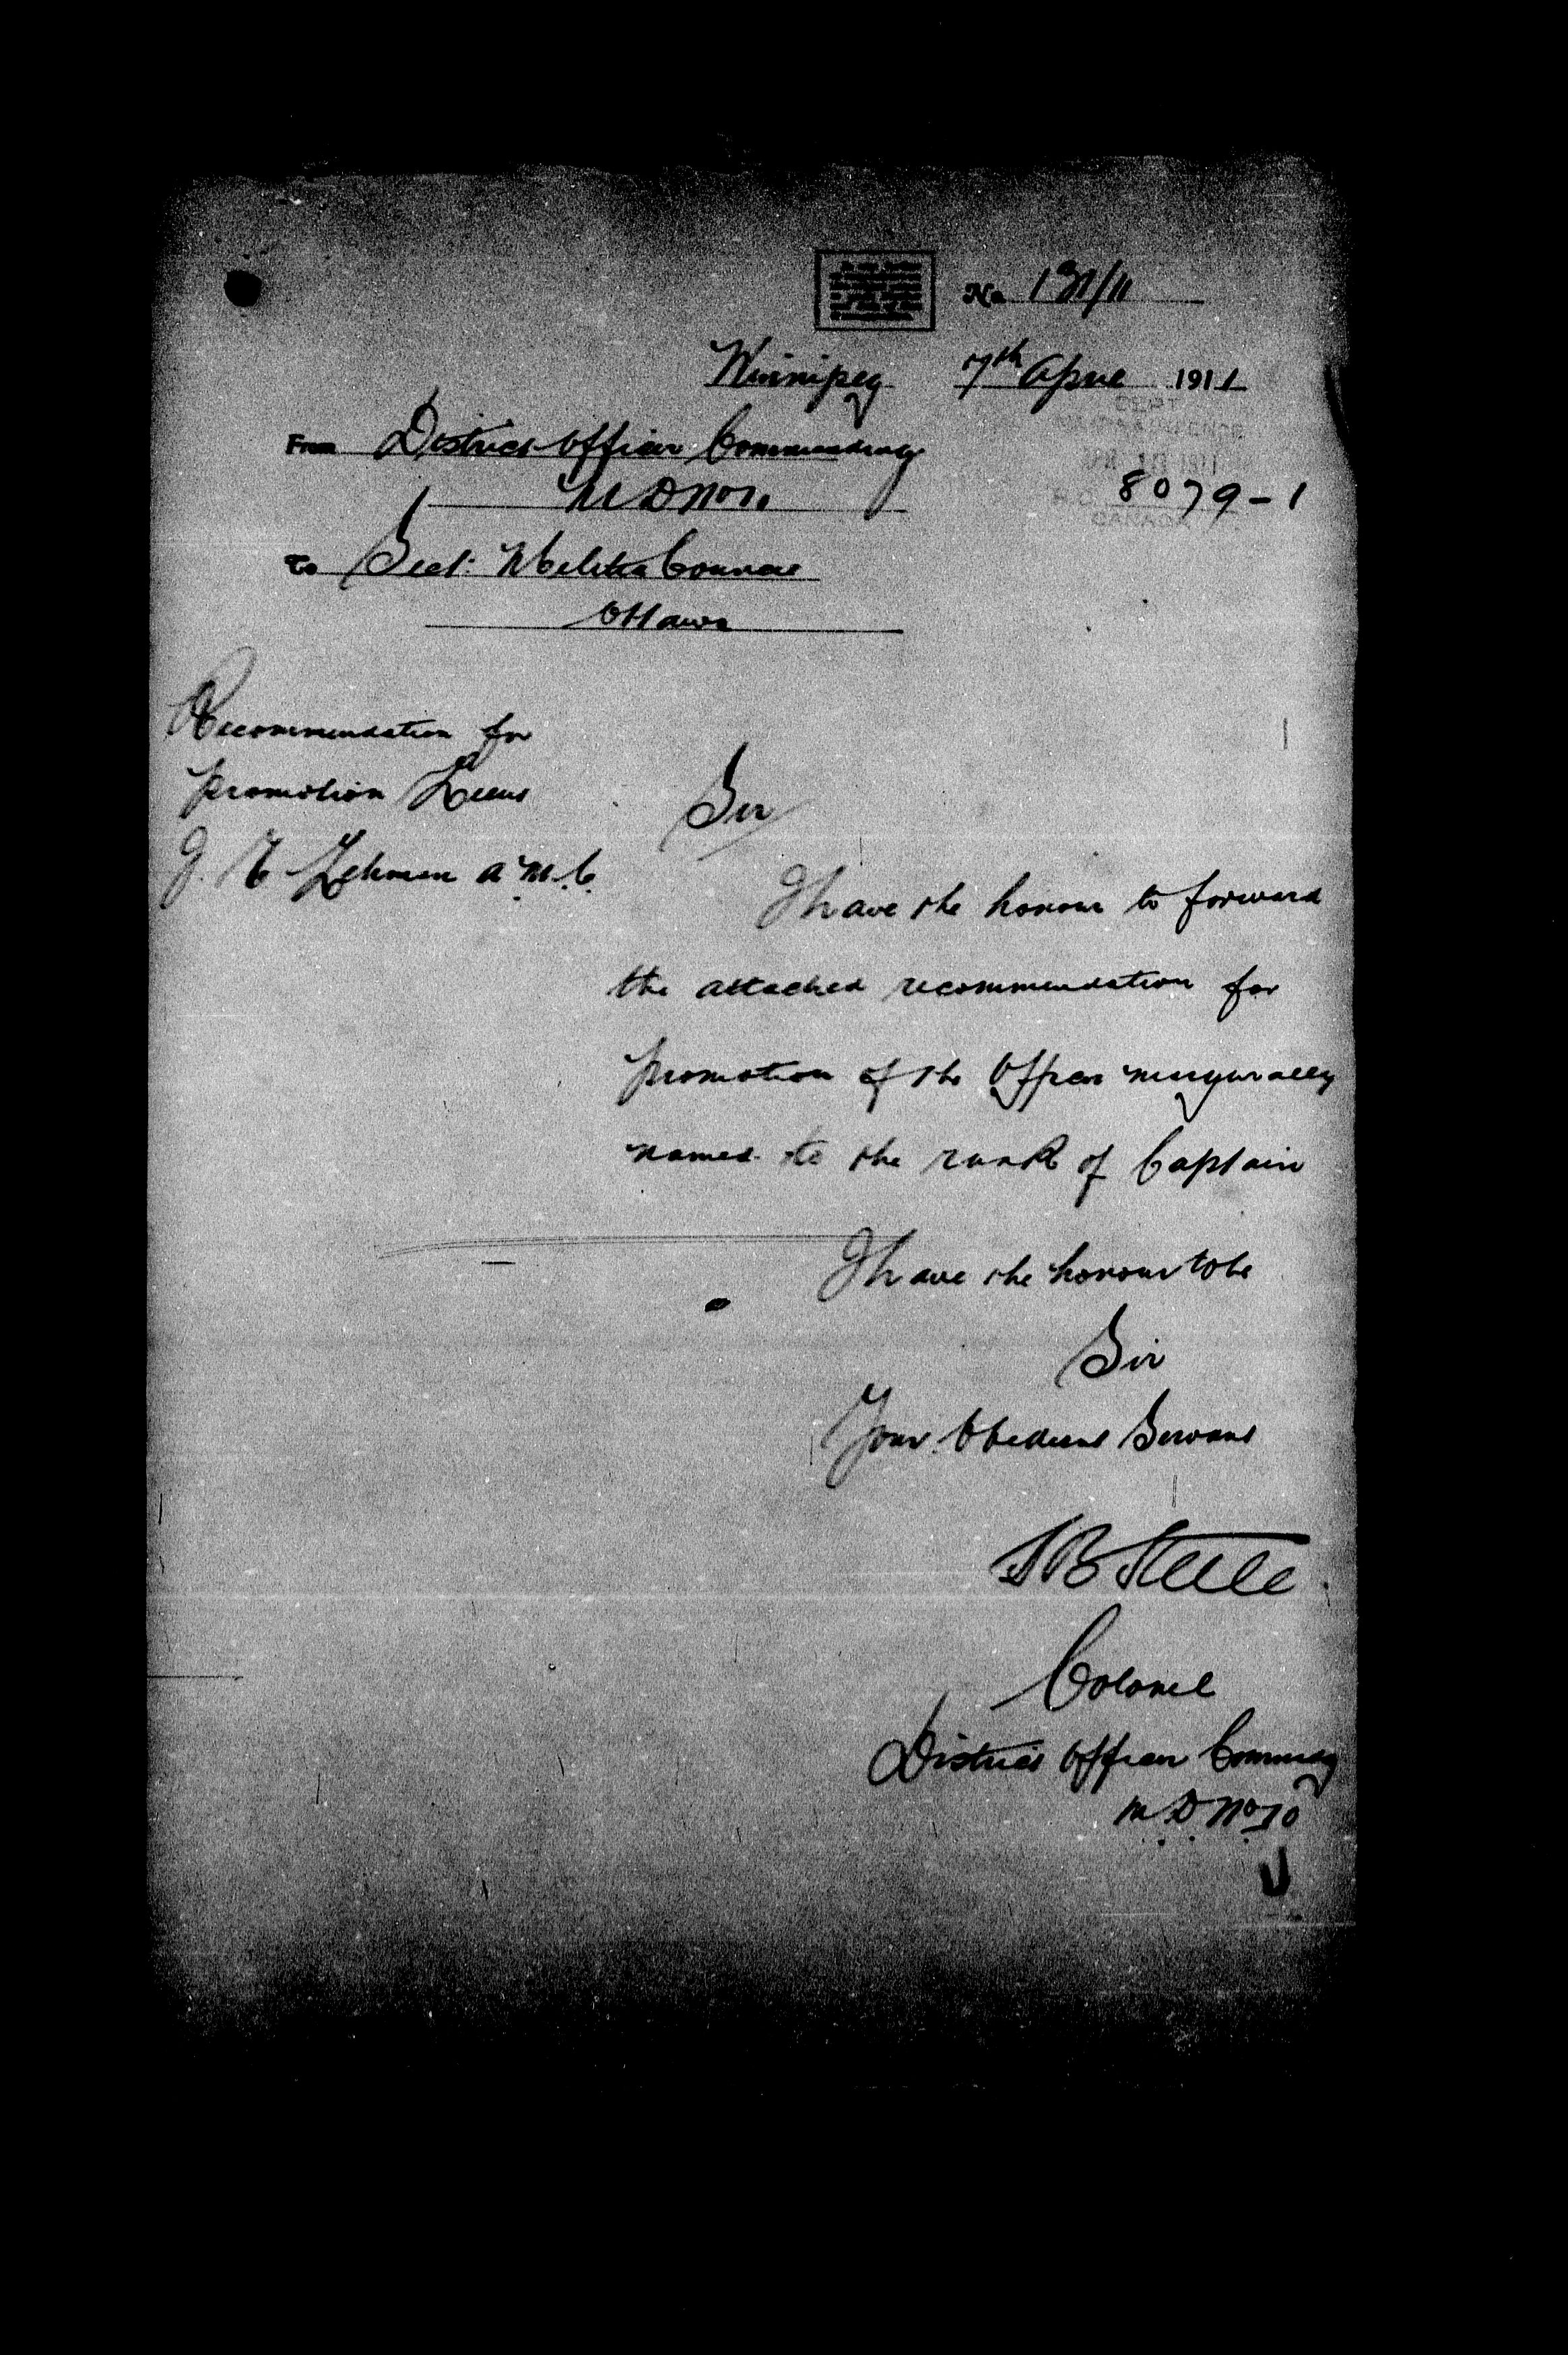 No 131/11
Winnipeg 7th April 1911
DEPT
MILITIA & DEFENCE
APR 10 1911
H.Q. 8079-1
CANADA
From District Officer Commanding
M D No 10
To Sect: Militia Council
Ottawa
Recommendation for
promotion Lieut
J. E Lehman A.M.C.
Sir
I have the honour to forward
the attached recommendation for
promotion of the Officer marginally
named to the rank of Captain
I have the honour to be
Sir
Your Obedient Servant
S B Steele
Colonel
District Officer Commdg
M.D. No 10